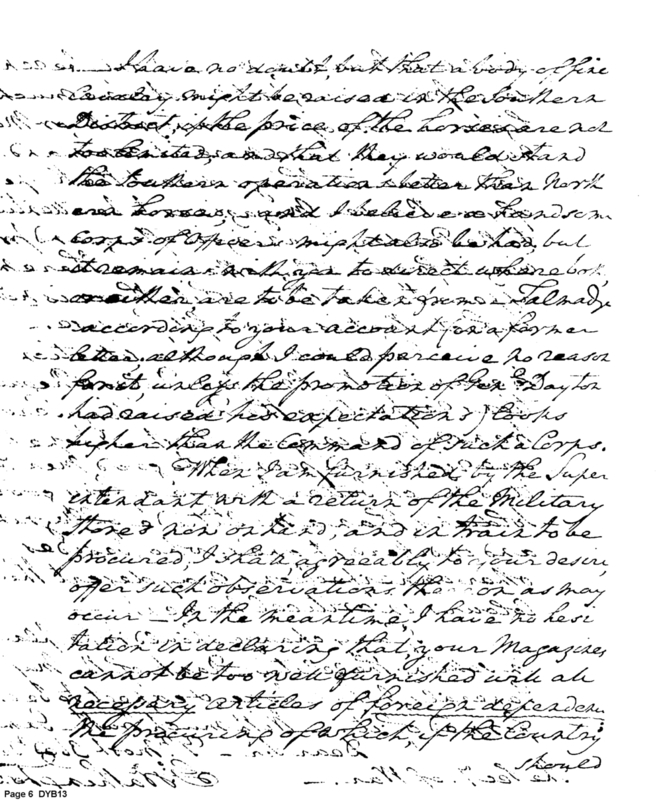 I have no doubt, but that a body of fine
Cavalry might be raised in the Southern
District, if the price of the horses are not
too limited, and that they would stand
the Southern operations better than North
ern horses, and I believe a handsom
Corps of Officers might also be had, but
it remains with you to direct where both
or either are to be taken from. Talmadge
according to your account, in a former
letter, although I could perceive no reason
for it, unless the promotion of Genl Dayton
had raised his expectations, looks
higher than the Command of such a Corps.
When I am furnished by the Super
intendant with a return of the Military
Stores now on hand, and in train to be
procured, I shall, agreeably to your desire,
offer such observations thereon, as may
occur — In the meantime, I have no hesi
tation in declaring that your Magazines
cannot be too well furnished with all
necessary articles of foreign dependence
the procuring of which, if the Country
should
Page 6 DYB13